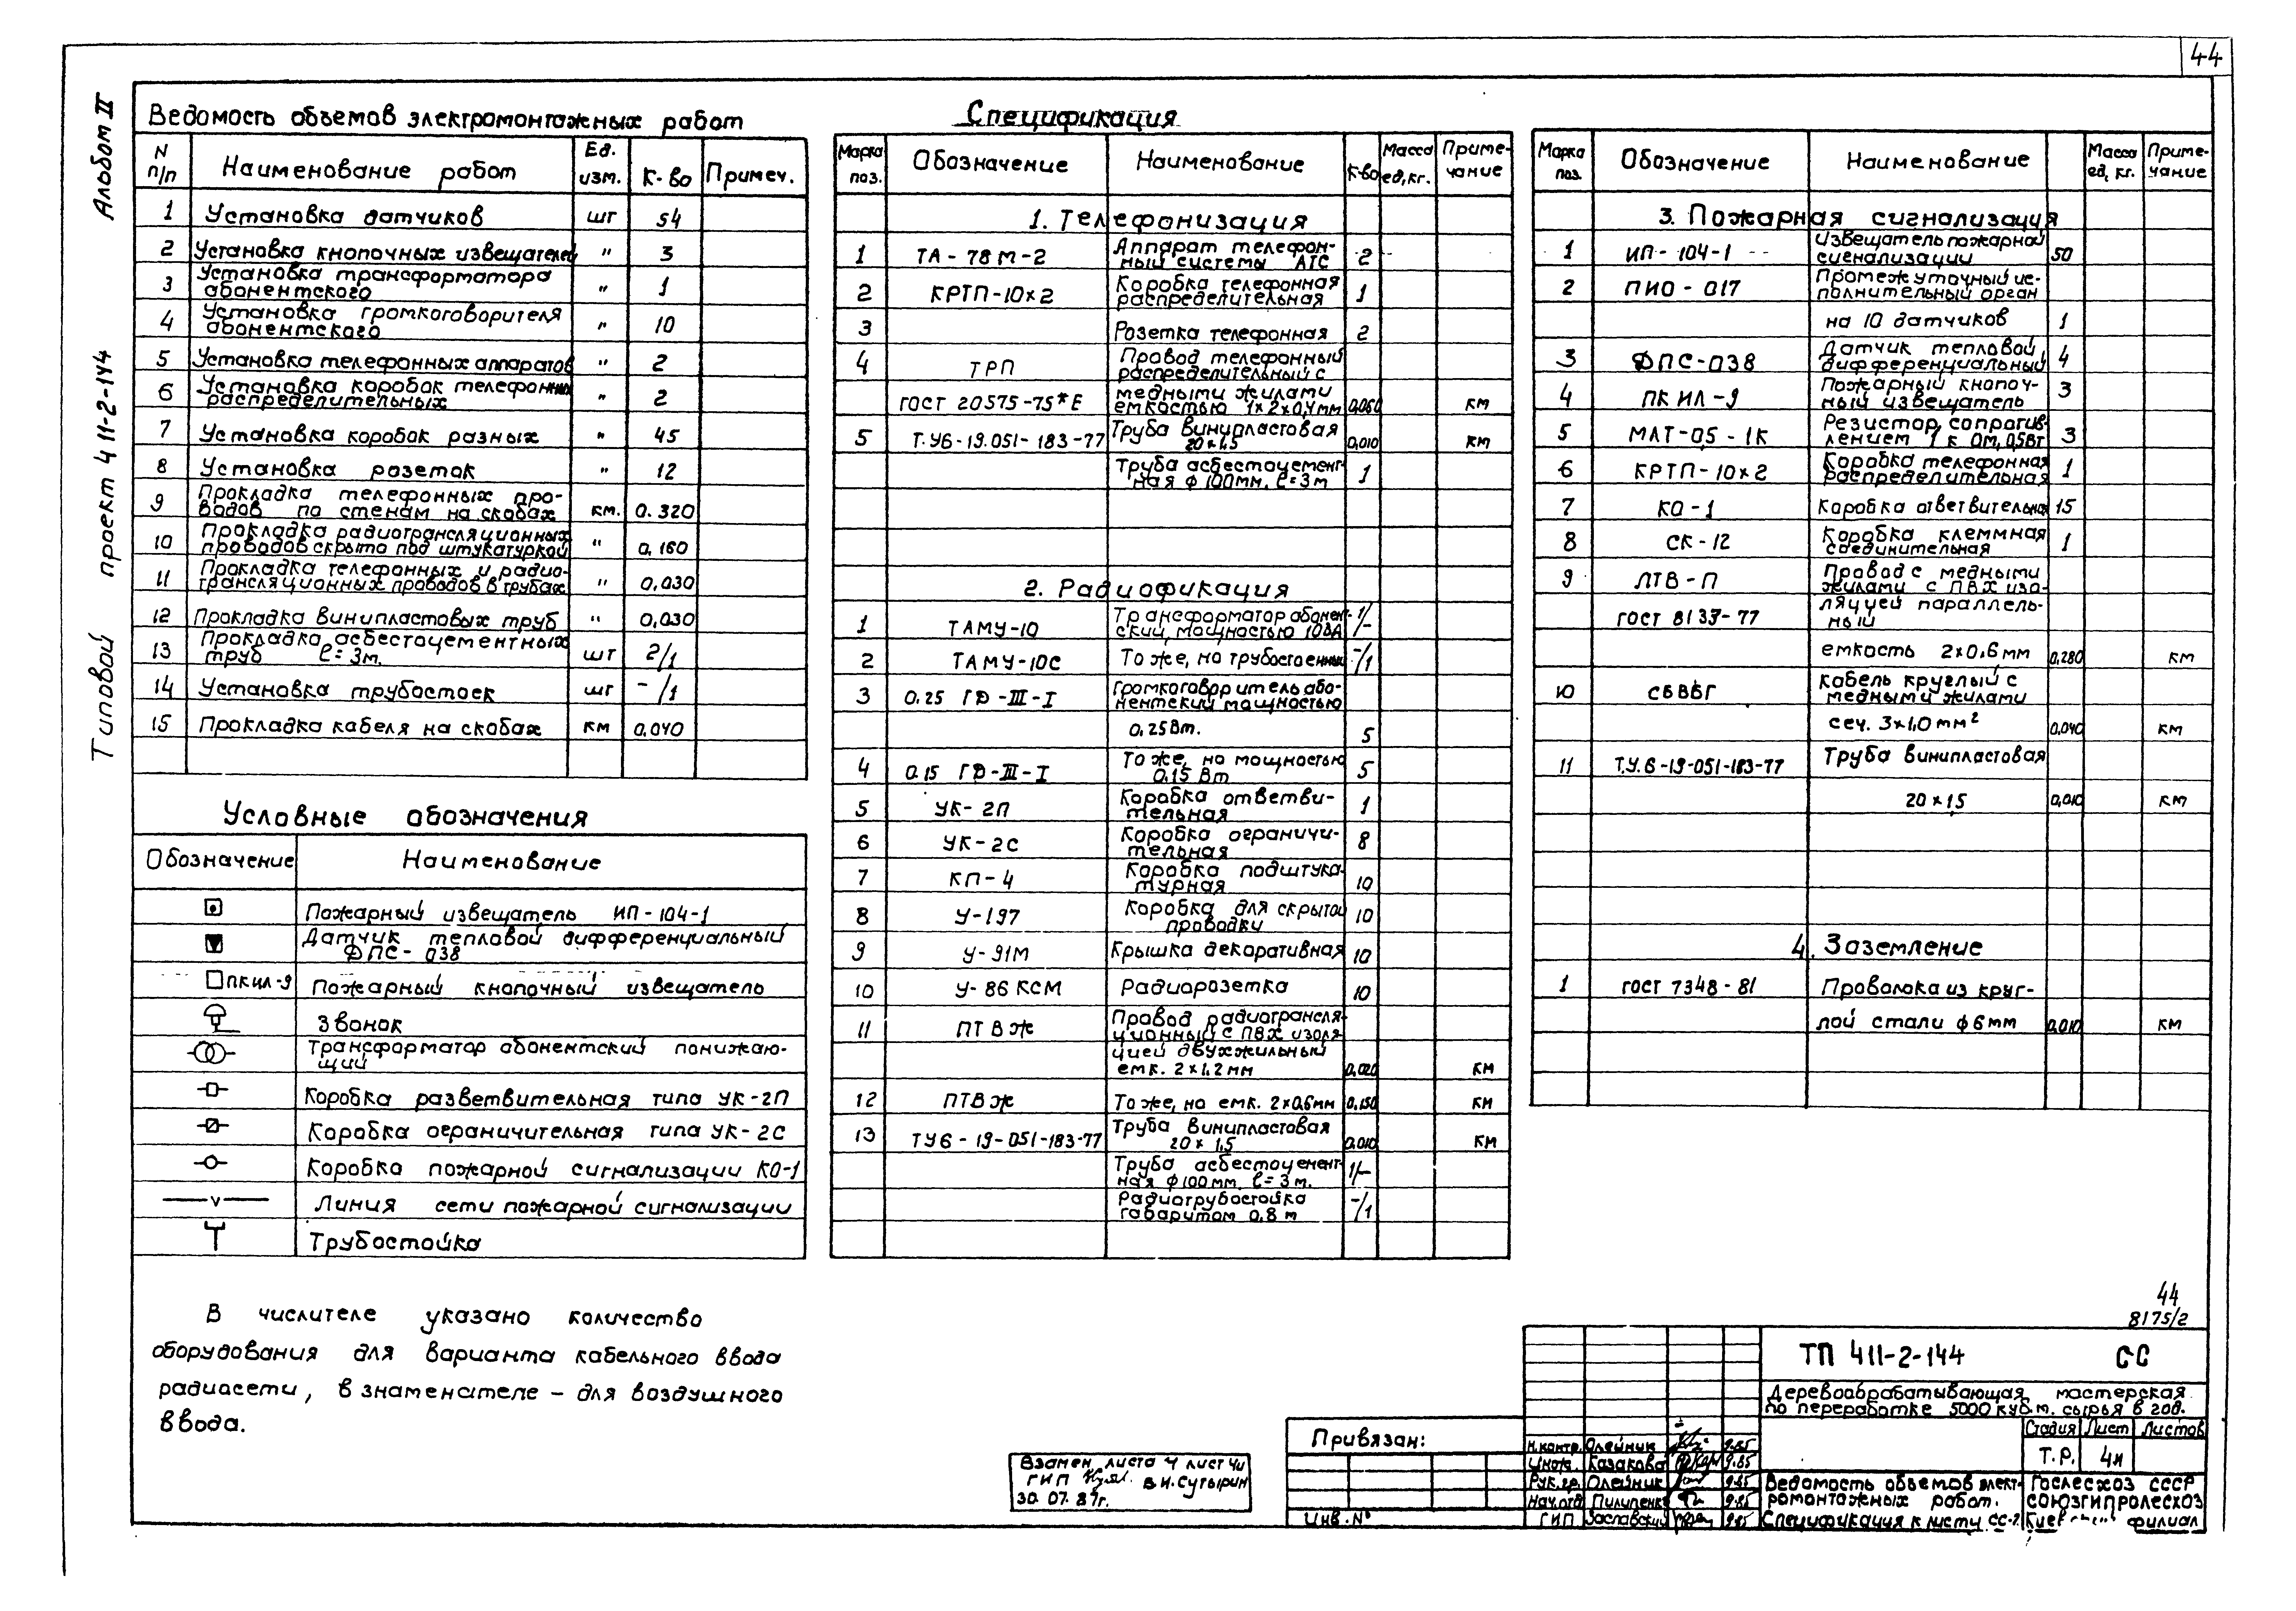 44
Альбом II
Типовой проект 411-2-144
Ведомость объемов электромонтажных работ
N п/п | Наименование работ | Ед. изм. | К-во | Примеч.
1 Установка датчиков шт 54
2 Установка кнопочных извещателей " 3
3 Установка трансформатора
абонентского " 1
4 Установка громкоговорителя
абонентского " 10
5 Установка телефонных аппаратов " 2
6 Установка коробок телефонных
распределительных " 2
7 Установка коробок разных " 45
8 Установка розеток " 12
9 Прокладка телефонных про-
водов по стенам на скобах км. 0.320
10 Прокладка радиотрансляционных
проводов скрыто под штукатуркой " 0,160
11 Прокладка телефонных и радио-
трансляционных проводов в трубах " 0,030
12 Прокладка винипластовых труб " 0,030
13 Прокладка асбестоцементных
труб ℓ=3м. шт 2/1
14 Установка трубостоек шт -/1
15 Прокладка кабеля на скобах км 0,040
Условные обозначения
Обозначение | Наименование
Пожарный извещатель ИП-104-1
Датчик тепловой дифференциальный
ДПС-038
ПКИЛ-9 Пожарный кнопочный извещатель
Звонок
Трансформатор абонентский понижаю-
щий
Коробка разветвительная типа УК-2П
Коробка ограничительная типа УК-2С
Коробка пожарной сигнализации КО-1
v Линия сети пожарной сигнализации
Трубостойка
В числителе указано количество
оборудования для варианта кабельного ввода
радиосети, в знаменателе - для воздушного
ввода.
Спецификация
Марка поз. | Обозначение | Наименование | К-во | Масса ед, кг. | Приме-чание
1. Телефонизация
1 ТА-78М-2 Аппарат телефон-
ный системы АТС 2
2 КРТП-10×2 Коробка телефонная
распределительная 1
3 Розетка телефонная 2
4 ТРП Провод телефонный
распределительный с
ГОСТ 20575-75*Е медными жилами
емкостью 1×2×0,4мм 0,060 км
5 Т.У6-19.051-183-77 Труба винипластовая
20×1,5 0,010 км
Труба асбестоцемент-
ная ф 100мм, ℓ=3м 1
2. Радиофикация
1 ТАМУ-10 Трансформатор абонент-
ский, мощностью 10ВА 1/-
2 ТАМУ-10С То же, на трубостоечный -/1
3 0.25 ГД-III-I Громкоговоритель або-
нентский мощностью
0,25Вт. 5
4 0.15 ГД-III-I То же, но мощностью
0,15 Вт 5
5 УК-2П Коробка ответви-
тельная 1
6 УК-2С Коробка ограничи-
тельная 8
7 КП-4 Коробка подштука-
турная 10
8 У-197 Коробка для скрытой
проводки 10
9 У-91М Крышка декоративная 10
10 У-86 КСМ Радиорозетка 10
11 ПТВЖ Провод радиотрансля-
ционный с ПВХ изоля-
цией двухжильный
емк. 2×1,2мм 0,020 км
12 ПТВЖ То же, но емк. 2×0,6мм 0,150 км
13 ТУ6-19-051-183-77 Труба винипластовая
20×1,5 0,010 км
Труба асбестоцемент-
ная ф100мм, ℓ=3м. 1/-
Радиотрубостойка
габаритом 0,8 м -/1
Марка поз. | Обозначение | Наименование | Масса ед, кг. | Приме-чание
3. Пожарная сигнализация
1 ИП-104-1 Извещатель пожарной
сигнализации 50
2 ПИО-017 Промежуточный ис-
полнительный орган
на 10 датчиков 1
3 ДПС-038 Датчик тепловой,
дифференциальный 4
4 ПКИЛ-9 Пожарный кнопоч-
ный извещатель 3
5 МЛТ-0,5-1К Резистор, сопротив-
лением 1 кОм, 0,5Вт 3
6 КРТП-10×2 Коробка телефонная
распределительная 1
7 КО-1 Коробка ответвительная 15
8 СК-12 Коробка клеммная
соединительная 1
9 ЛТВ-П Провод с медными
жилами с ПВХ изо-
ГОСТ 8133-77 ляцией параллель-
ный
емкость 2×0,6мм 0,280 км
10 СБВБГ Кабель круглый с
медными жилами
сеч. 3×1,0мм² 0,040 км
11 Т.У.6-19-051-183-77 Труба винипластовая
20×1,5 0,010 км
4. Заземление
1 ГОСТ 7348-81 Проволока из круг-
лой стали ф6мм 0,010 км
44
8175/2
ТП 411-2-144 СС
Деревообрабатывающая мастерская
по переработке 5000 куб.м. сырья в год.
Стадия Лист Листов
Т.Р. 4и
Ведомость объемов элект-
ромонтажных работ.
Спецификация к листу СС-2
Гослесхоз СССР
Союзгипролесхоз
филиал
Н.контр. Олейник 9.85
Инж. Казакова 9.85
Рук.гр. Олейник 9.85
Нач.отд Пилипенко 9.85
ГИП Заславский 9.85
Привязан:
Инв. №
Взамен листа 4 лист 4и
ГИП В.И.Сутырин
30.07.87г.